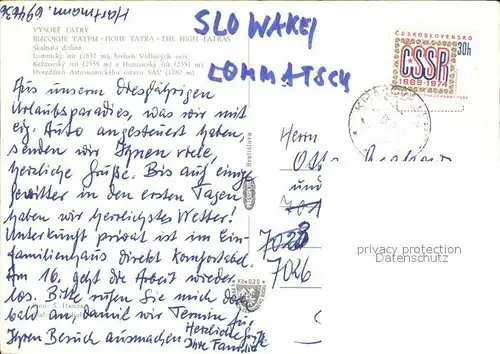 Hartmann, 69463
SLOWAKEI
LOMMATSCH
VYSOKÉ TATRY
ВЫСОКИЕ ТАТРЫ - HOHE TATRA - THE HIGH TATRAS
Skalnatá dolina
Lomnický štít (2632 m), hrebeň Vidlových veží,
Kežmarský štít (2558 m) a Huncovský štít (2351 m)
Hvezdáreň Astronomického ústavu SAV (1787 m)
ČESKOSLOVENSKO
30h
ČSSR
1969-1974
Aus unserem diesjährigen
Urlaubsparadies, was wir mit
eig. Auto angesteuert haben,
senden wir Ihnen viele,
herzliche Grüße. Bis auf einige
Gewitter in den ersten Tagen
haben wir herrlichstes Wetter!
Unterkunft privat ist im Ein-
familienhaus direkt komfortabel.
Am 16. geht die Arbeit wieder
los. Bitte rufen Sie mich doch
bald an, damit wir Termin für
Ihren Besuch ausmachen
Herzliche Grüße
Ihre Familie
Bratislava
Kčs 0,20
Herrn
Otto
und
701
7028
7026
privacy protection
Datenschutz